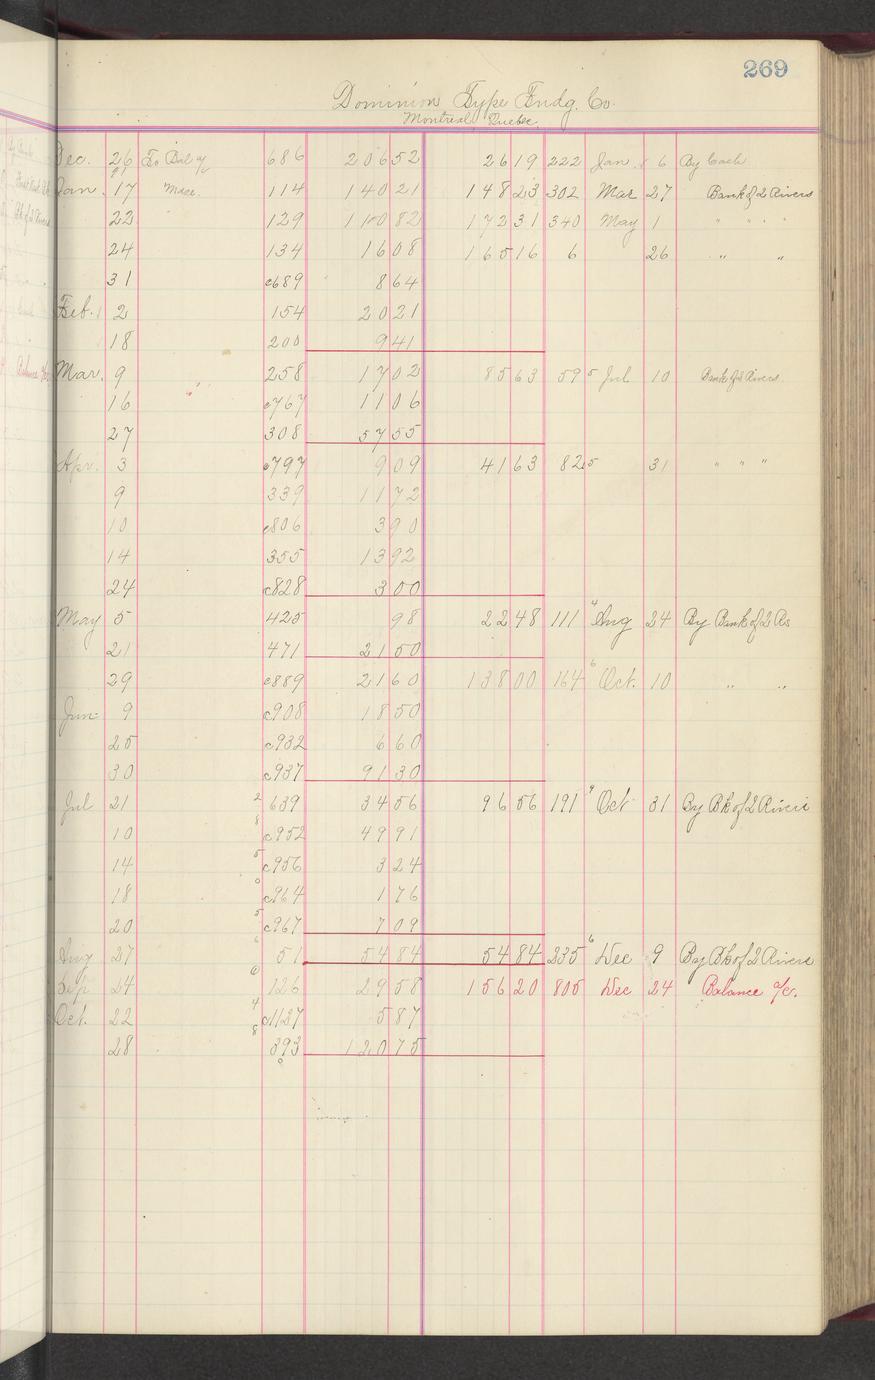 269
Dominion Type Fndg. Co.
Montreal, Quebec
Dec. 26 To Bal a/c 686 206 52 26 19 222 Jan 6 By Cash
Jan. 17 " Mdse. 114 140 21 148 23 302 Mar 27 Bank of 2 Rivers
22 " 129 110 82 172 31 340 May 1 " " "
24 134 16 08 165 16 6 26 " "
31 c689 8 64
Feb. 2 154 20 21
18 200 9 41
Mar. 9 258 17 02 85 63 59 5 Jul 10 Bank of 2 Rivers
16 c767 11 06
27 308 57 55
Apr. 3 c797 9 09 41 63 82 5 31 " " "
9 339 11 72
10 c806 3 90
14 355 13 92
24 c828 3 00
May 5 425 98 22 48 111 4 Aug 24 By Bank of 2 Rs
21 471 21 50
29 c889 21 60 138 00 164 6 Oct. 10 " "
Jun 9 c908 18 50
25 c932 6 60
30 c937 91 30
Jul 21 2 639 34 56 96 56 191 9 Oct 31 By Bk of 2 Rivers
10 8 c952 49 91
14 5 c956 3 24
18 0 c964 1 76
20 5 c967 7 09
Aug 27 6 51 54 84 54 84 235 6 Dec 9 By Bk of 2 Rivers
Sep 24 6 126 29 58 156 20 805 Dec 24 Balance a/c.
Oct. 22 4 c1137 5 87
28 8 393 120 75